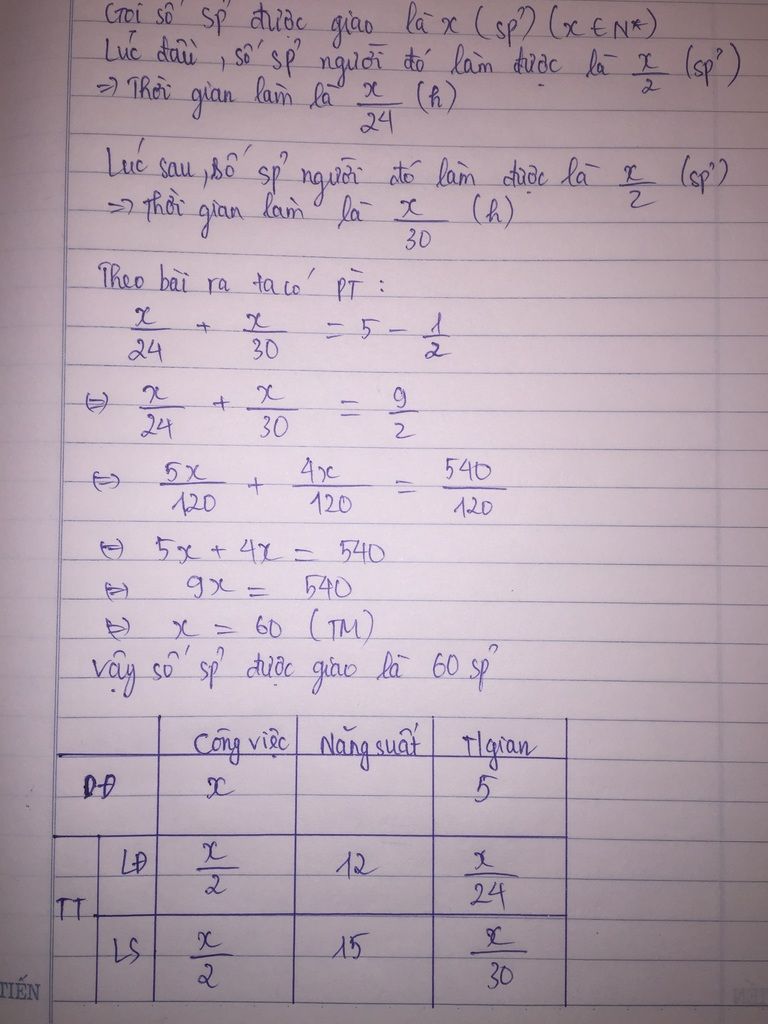 Gọi số sp được giao là x (sp) (x ∈ N*)
Lúc đầu, số sp người đó làm được là x/2 (sp)
=> Thời gian làm là x/24 (h)
Lúc sau, số sp người đó làm được là x/2 (sp)
=> Thời gian làm là x/30 (h)
Theo bài ra ta có PT:
x/24 + x/30 = 5 - 1/2
⇔ x/24 + x/30 = 9/2
⇔ 5x/120 + 4x/120 = 540/120
⇔ 5x + 4x = 540
⇔ 9x = 540
⇔ x = 60 (TM)
Vậy số sp được giao là 60 sp
Công việc Năng suất T/gian
DĐ x 5
LĐ x/2 12 x/24
TT
LS x/2 15 x/30
TIẾN